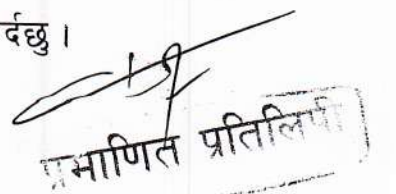 र्दछु ।
प्रमाणित प्रतिलिपी